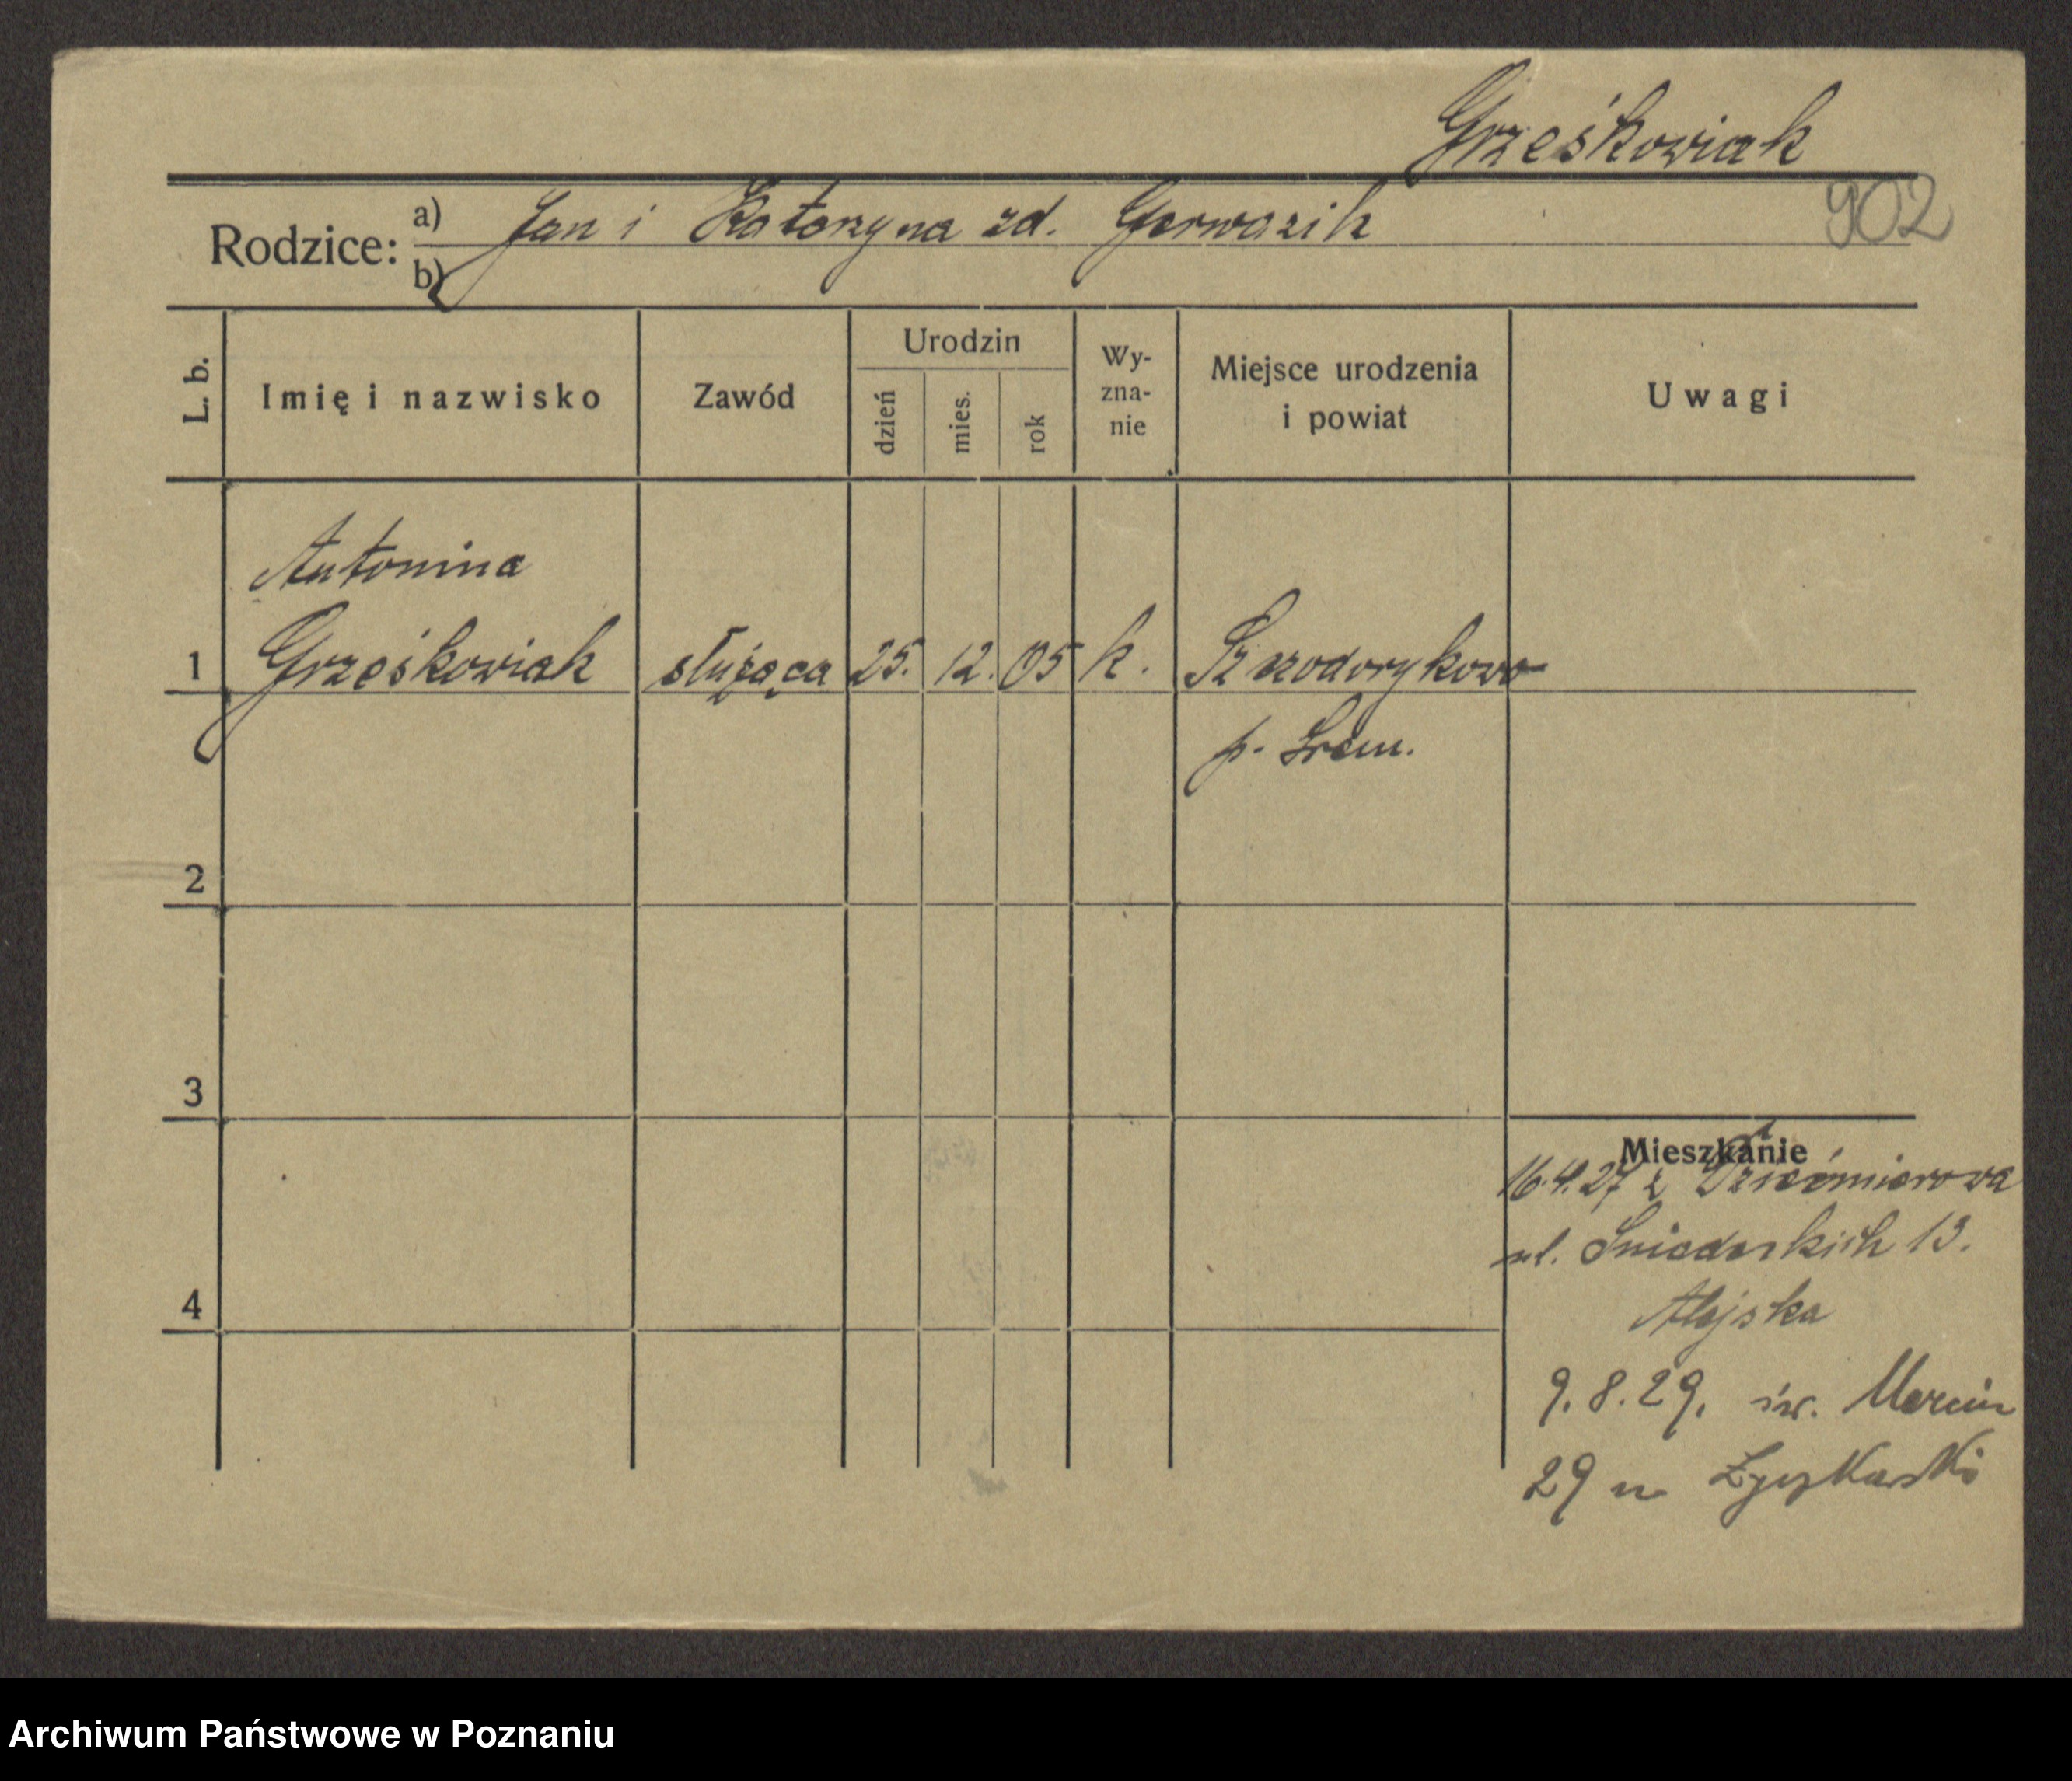 Grześkowiak
902
Rodzice: a) Jan i Katarzyna zd. Gerwazik
b)
L. b.
Imię i nazwisko
Zawód
Urodzin
dzień
mies.
rok
Wy-
zna-
nie
Miejsce urodzenia
i powiat
Uwagi
Antonina
1 Grześkowiak służąca 25. 12. 05 k. Szczodrzykowo
p. Śrem.
2
3
4
Mieszkanie
16.4.27 z Dziećmierowa
ul. Śniadeckich 13.
9.8.29. św. Marcin
29 u
Archiwum Państwowe w Poznaniu